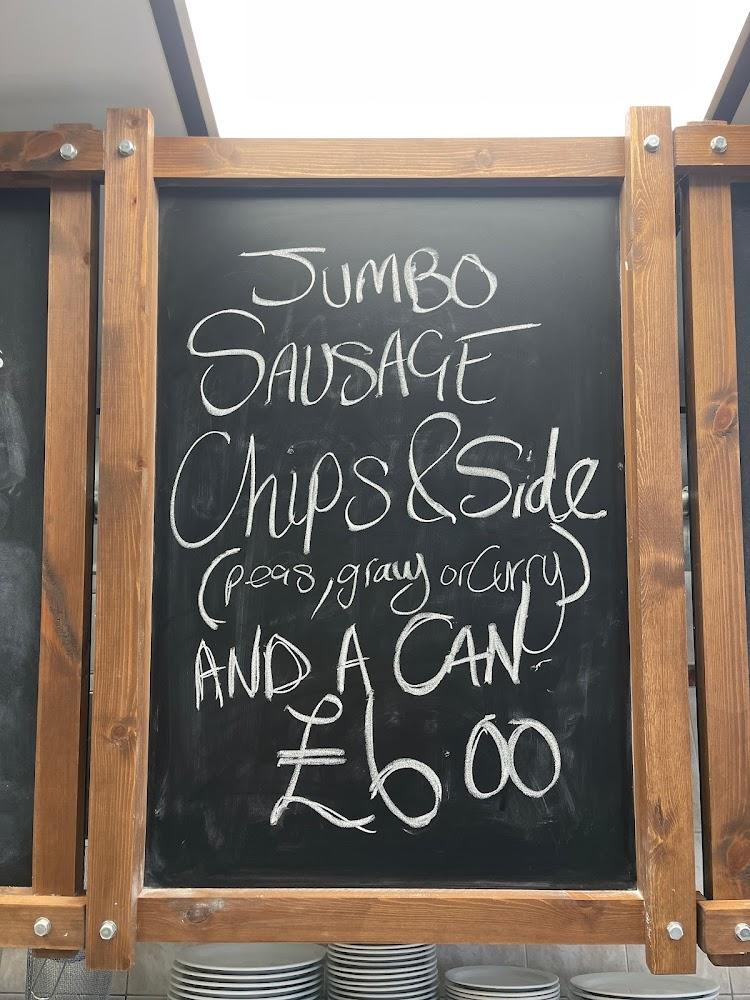 JUMBO
SAUSAGE
Chips & Side
(peas, gravy or Curry)
AND A CAN
£6 00